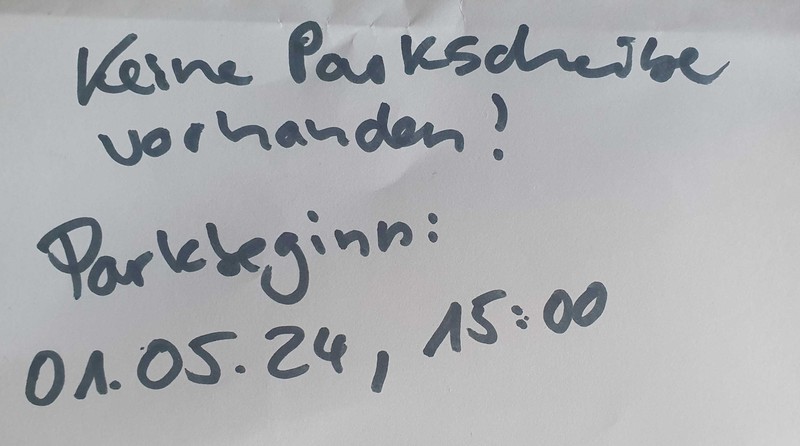 Keine Parkscheibe
vorhanden!
Parkbeginn:
01.05.24, 15:00